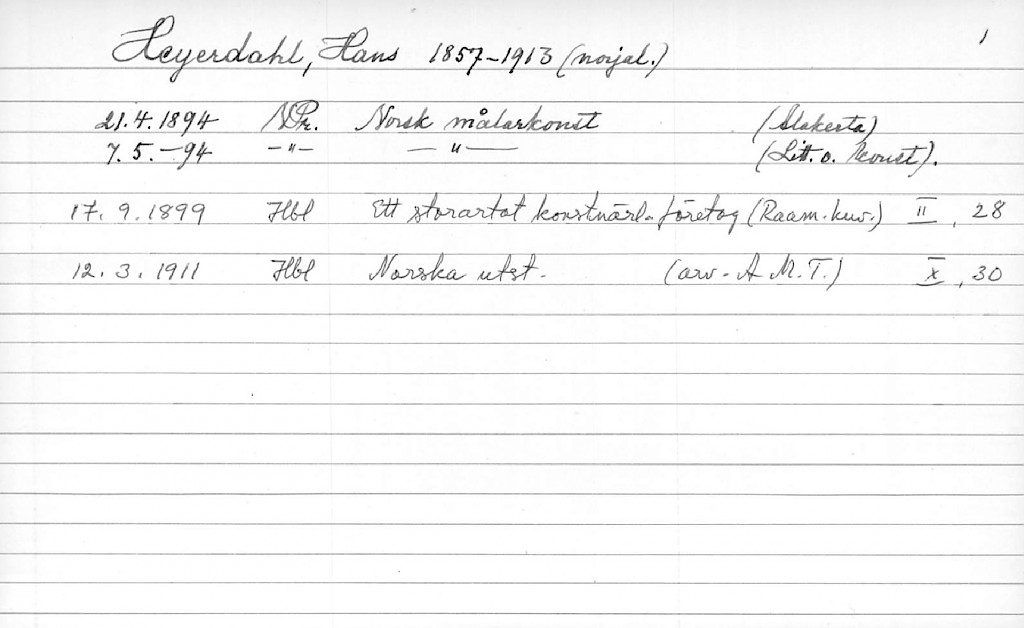 Heyerdahl, Hans 1857-1913 (norjal.) 1
21.4.1894 NPr. Norsk målarkonst (Slakesta)
7.5.-94 -"- -"- (Litt. o. konst).
17.9.1899 Hbl Ett storartat konstnärl. företag (Raam.kuv.) II, 28
12.3.1911 Hbl Norska utst. (arv. A M.T.) X, 30